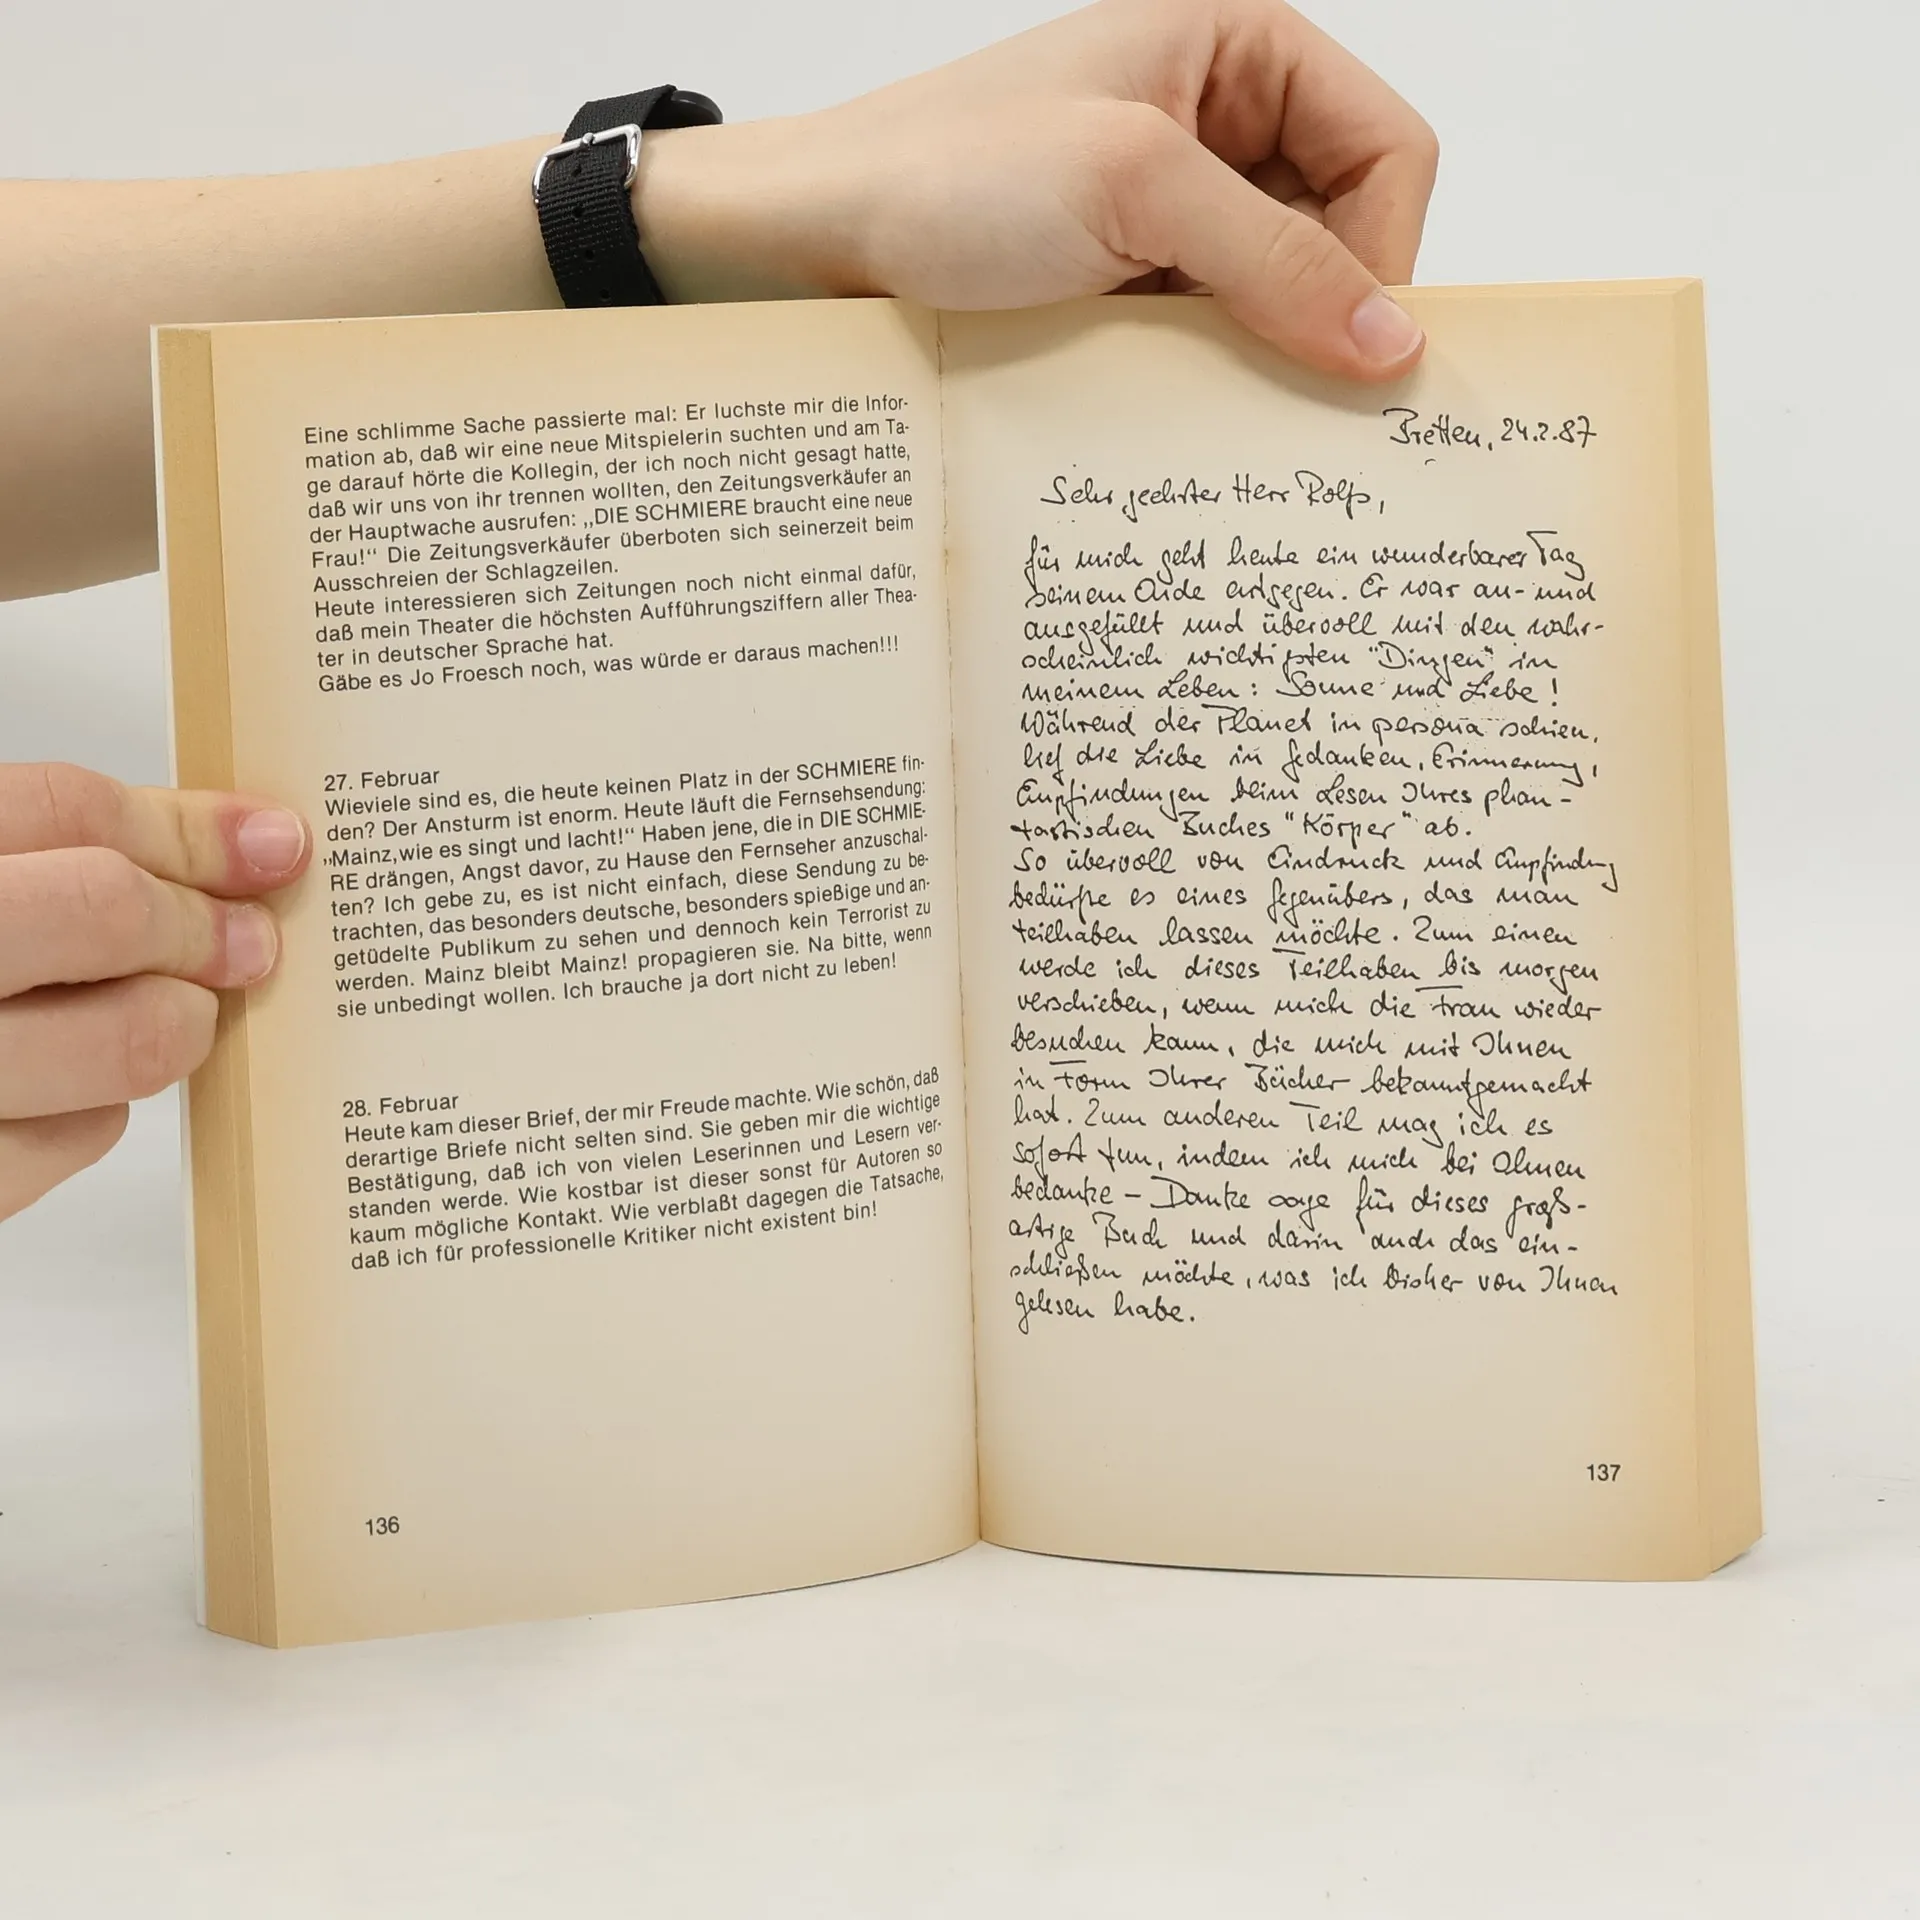 Eine schlimme Sache passierte mal: Er luchste mir die Infor-
mation ab, daß wir eine neue Mitspielerin suchten und am Ta-
ge darauf hörte die Kollegin, der ich noch nicht gesagt hatte,
daß wir uns von ihr trennen wollten, den Zeitungsverkäufer an
der Hauptwache ausrufen: „DIE SCHMIERE braucht eine neue
Frau!“ Die Zeitungsverkäufer überboten sich seinerzeit beim
Ausschreien der Schlagzeilen.
Heute interessieren sich Zeitungen noch nicht einmal dafür,
daß mein Theater die höchsten Aufführungsziffern aller Thea-
ter in deutscher Sprache hat.
Gäbe es Jo Froesch noch, was würde er daraus machen!!!
27. Februar
Wieviele sind es, die heute keinen Platz in der SCHMIERE fin-
den? Der Ansturm ist enorm. Heute läuft die Fernsehsendung:
„Mainz,wie es singt und lacht!“ Haben jene, die in DIE SCHMIE-
RE drängen, Angst davor, zu Hause den Fernseher anzuschal-
ten? Ich gebe zu, es ist nicht einfach, diese Sendung zu be-
trachten, das besonders deutsche, besonders spießige und an-
getüdelte Publikum zu sehen und dennoch kein Terrorist zu
werden. Mainz bleibt Mainz! propagieren sie. Na bitte, wenn
sie unbedingt wollen. Ich brauche ja dort nicht zu leben!
28. Februar
Heute kam dieser Brief, der mir Freude machte. Wie schön, daß
derartige Briefe nicht selten sind. Sie geben mir die wichtige
Bestätigung, daß ich von vielen Leserinnen und Lesern ver-
standen werde. Wie kostbar ist dieser sonst für Autoren so
kaum mögliche Kontakt. Wie verblaßt dagegen die Tatsache,
daß ich für professionelle Kritiker nicht existent bin!
136
Bretten, 24.2.87
Sehr geehrter Herr Rolfs,
für mich geht heute ein wunderbarer Tag
seinem Ende entgegen. Er war an- und
ausgefüllt und übervoll mit den wahr-
scheinlich wichtigsten "Dingen" in
meinem Leben: Sonne und Liebe!
Während der Planet in persona schien,
lief die Liebe in Gedanken, Erinnerung,
Empfindungen beim Lesen Ihres phan-
tastischen Buches "Körper" ab.
So übervoll von Eindruck und Empfindung
bedürfte es eines Gegenübers, das man
teilhaben lassen möchte. Zum einen
werde ich dieses Teilhaben bis morgen
verschieben, wenn mich die Frau wieder
besuchen kann, die mich mit Ihnen
in Form Ihrer Bücher bekanntgemacht
hat. Zum anderen Teil mag ich es
sofort tun, indem ich mich bei Ihnen
bedanke – Danke sage für dieses groß-
artige Buch und darin auch das ein-
schließen möchte, was ich bisher von Ihnen
gelesen habe.
137